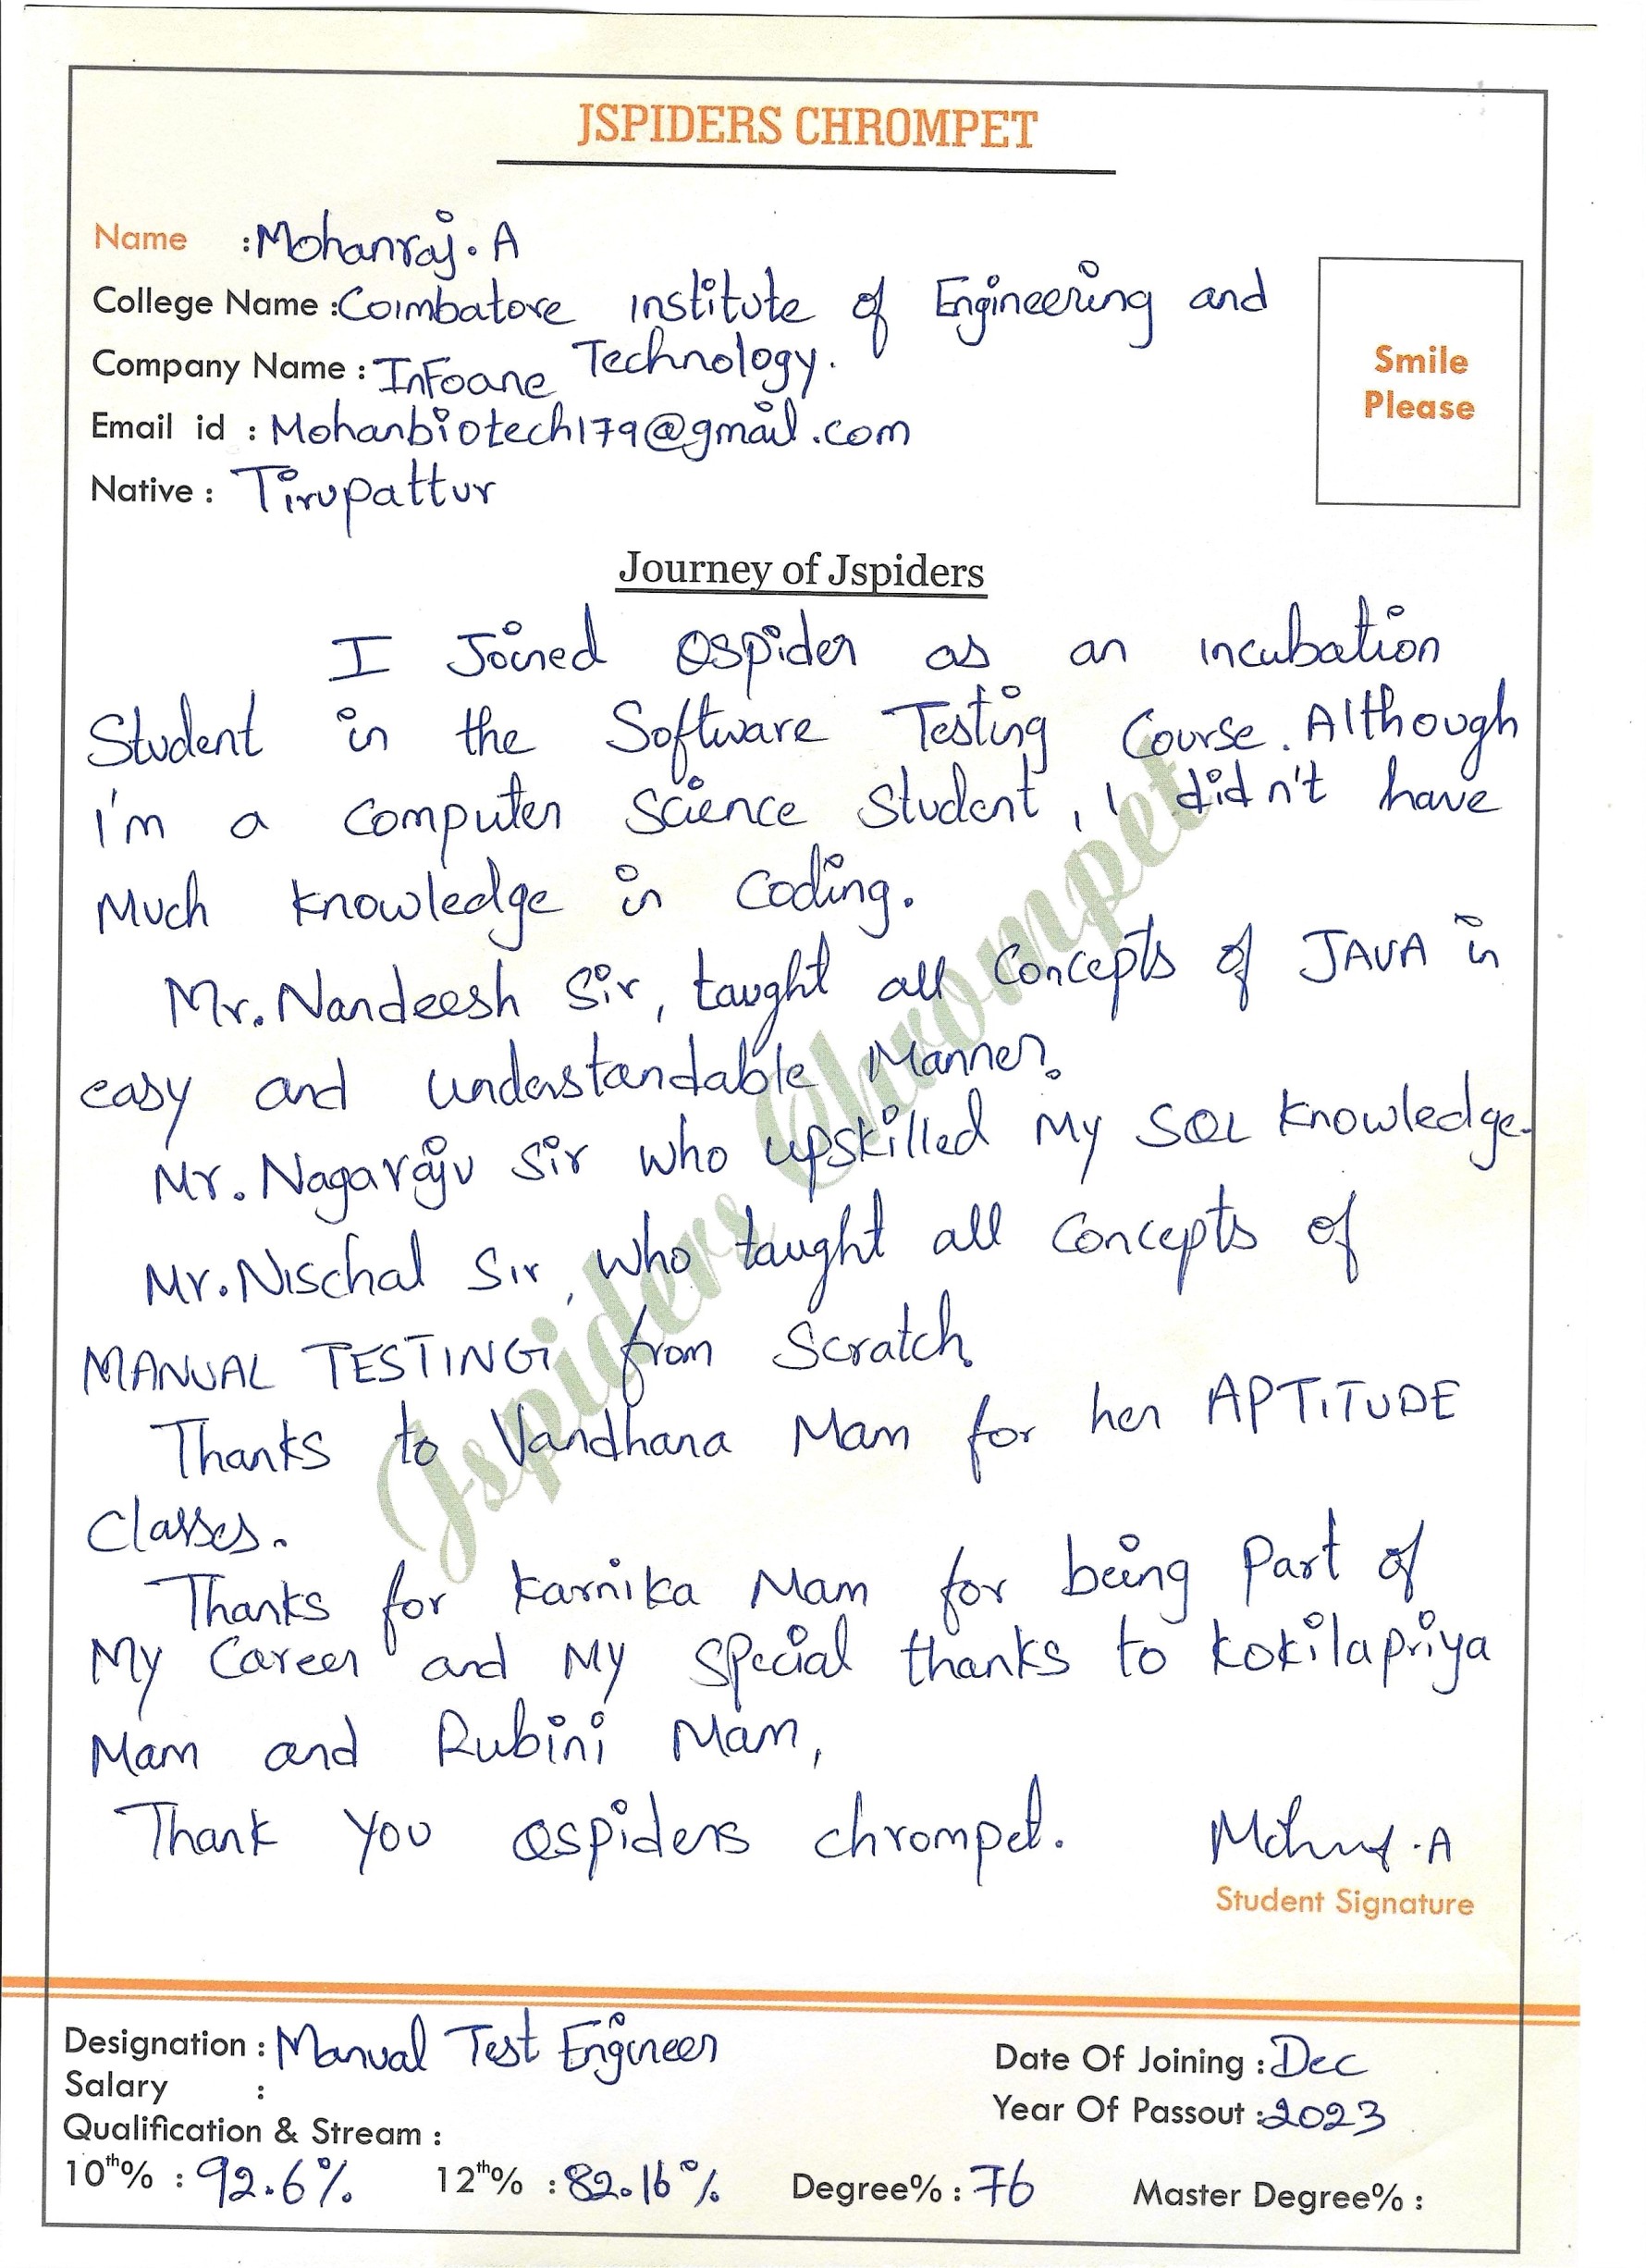 JSPIDERS CHROMPET
Name : Mohanraj. A
College Name : Coimbatore institute of Engineering and
Technology.
Company Name : InFoane
Email id : Mohanbiotech179@gmail.com
Native : Tirupattur
Smile
Please
Journey of Jspiders
I Joined Qspider as an incubation
Student in the Software Testing Course. Although
I'm a computer Science Student, I didn't have
Much knowledge in Coding.
Mr. Nandeesh Sir, taught all Concepts of JAVA in
easy and understandable Manner.
Mr. Nagaraju Sir who upskilled My SQL knowledge.
Mr. Nischal Sir, who taught all Concepts of
MANUAL TESTING from Scratch.
Thanks to Vandhana Mam for her APTITUDE
Classes.
Thanks for karnika Mam for being Part of
My Career and My Special thanks to kokilapriya
Mam and Rubini Mam,
Thank You Qspiders chrompet.
Student Signature
Jspiders Chrompet
Designation : Manual Test Engineer
Date Of Joining : Dec
Salary :
Year Of Passout : 2023
Qualification & Stream :
10th% : 92.6% 12th% : 82.16% Degree% : 76 Master Degree% :